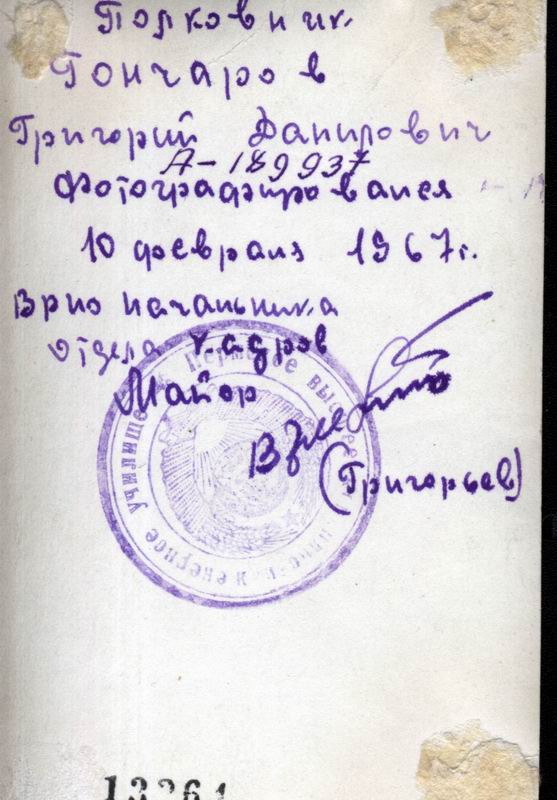 Полковник
Гончаров
Григорий Данилович
А-189937
Фотографировался
10 февраля 1967г.
Врио начальника
отдела кадров
Майор
(Григорьев)
Пермское высшее
инженерное училище
13261